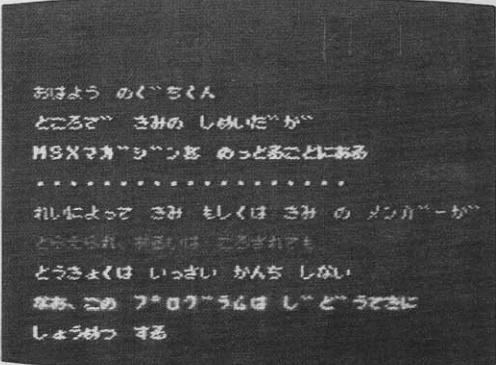 おはよう のぐちくん
ところで きみの しめいだが
MSXマガジンを のっとることにある
・・・・・・・・・・・・・・・・・・
れいによって きみ もしくは きみ の メンバーが
とらえられ、あるいは ころされても
とうきょくは いっさい かんち しない
なお、この プログラムは じどうてきに
しょうめつ する